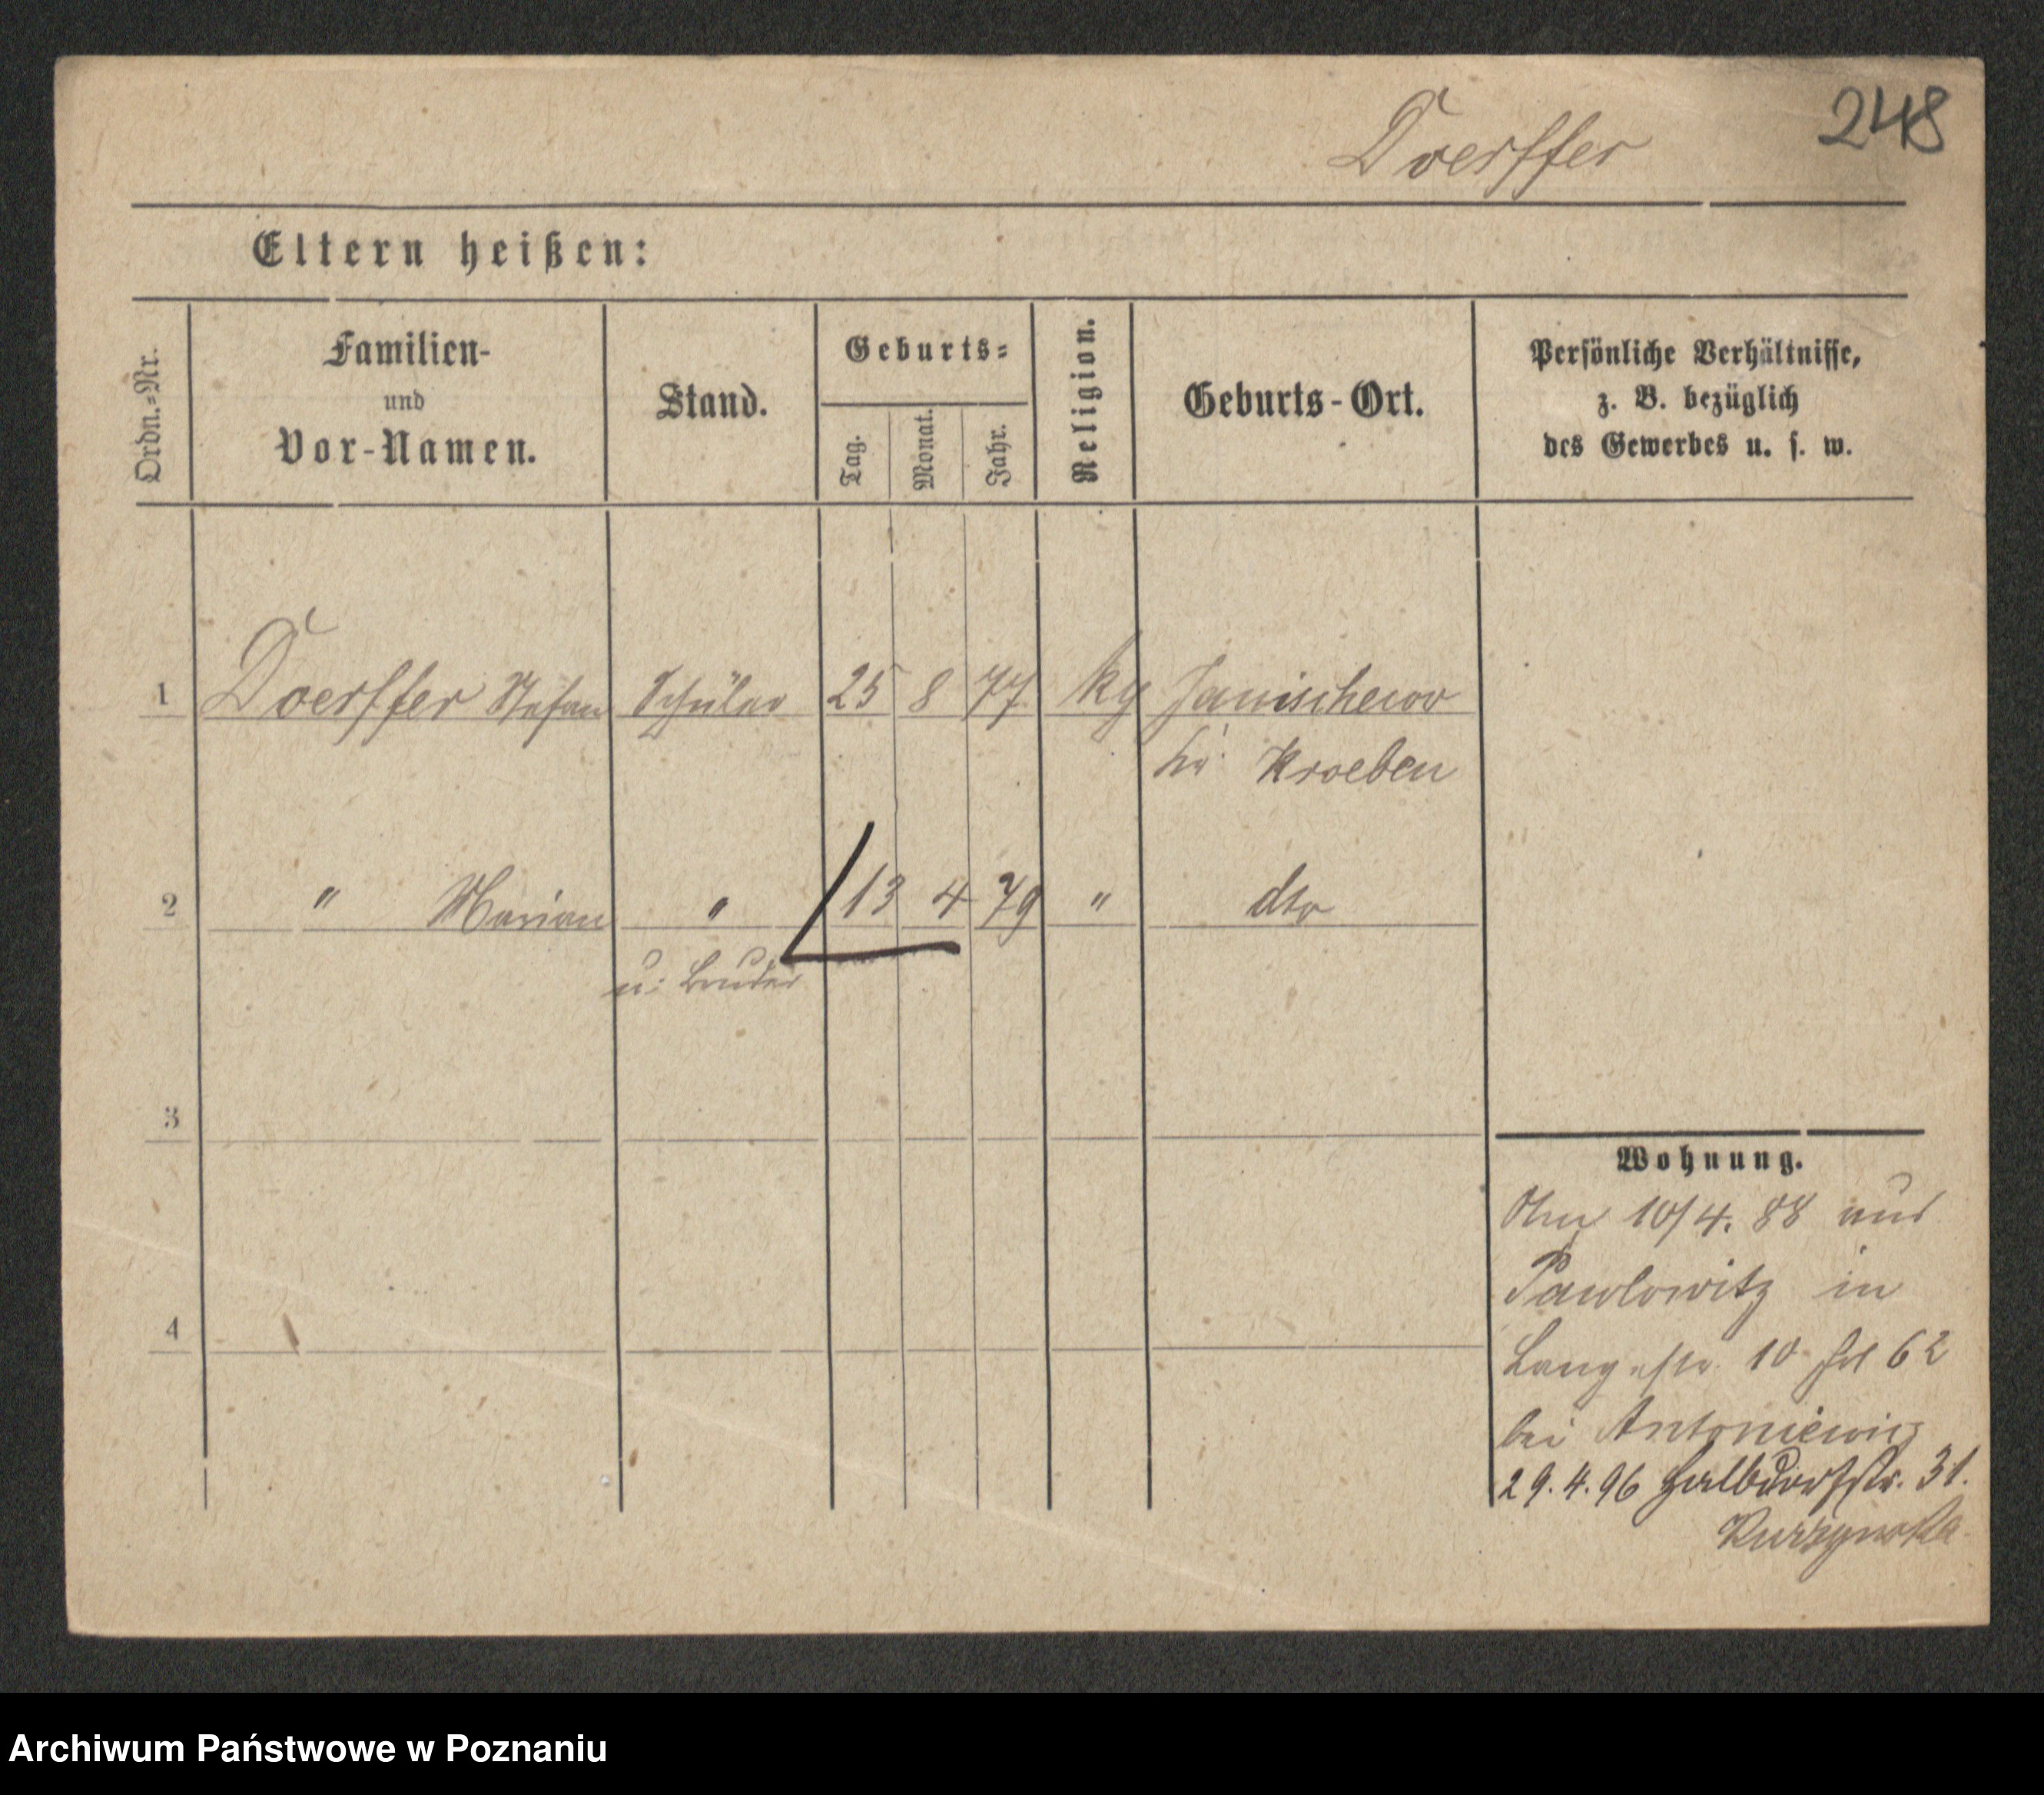 248
Doerffer
Eltern heißen:
Ordn.-Nr.
Familien-
und
Vor-Namen.
Stand.
Geburts-
Tag.
Monat.
Jahr.
Religion.
Geburts-Ort.
Persönliche Verhältnisse,
z. B. bezüglich
des Gewerbes u. s. w.
1 Doerffer Stefan Schüler 25 8 77 kg Janischewo
Kroeben
2 " Marian " 13 4 79 " dto
u: Bruder
3
4
Wohnung.
10/4. 88 aus
Pawlowitz in
Langestr. 10 fol 62
bei Antoniewicz
29.4.96 Halbdorfstr. 31.
Archiwum Państwowe w Poznaniu